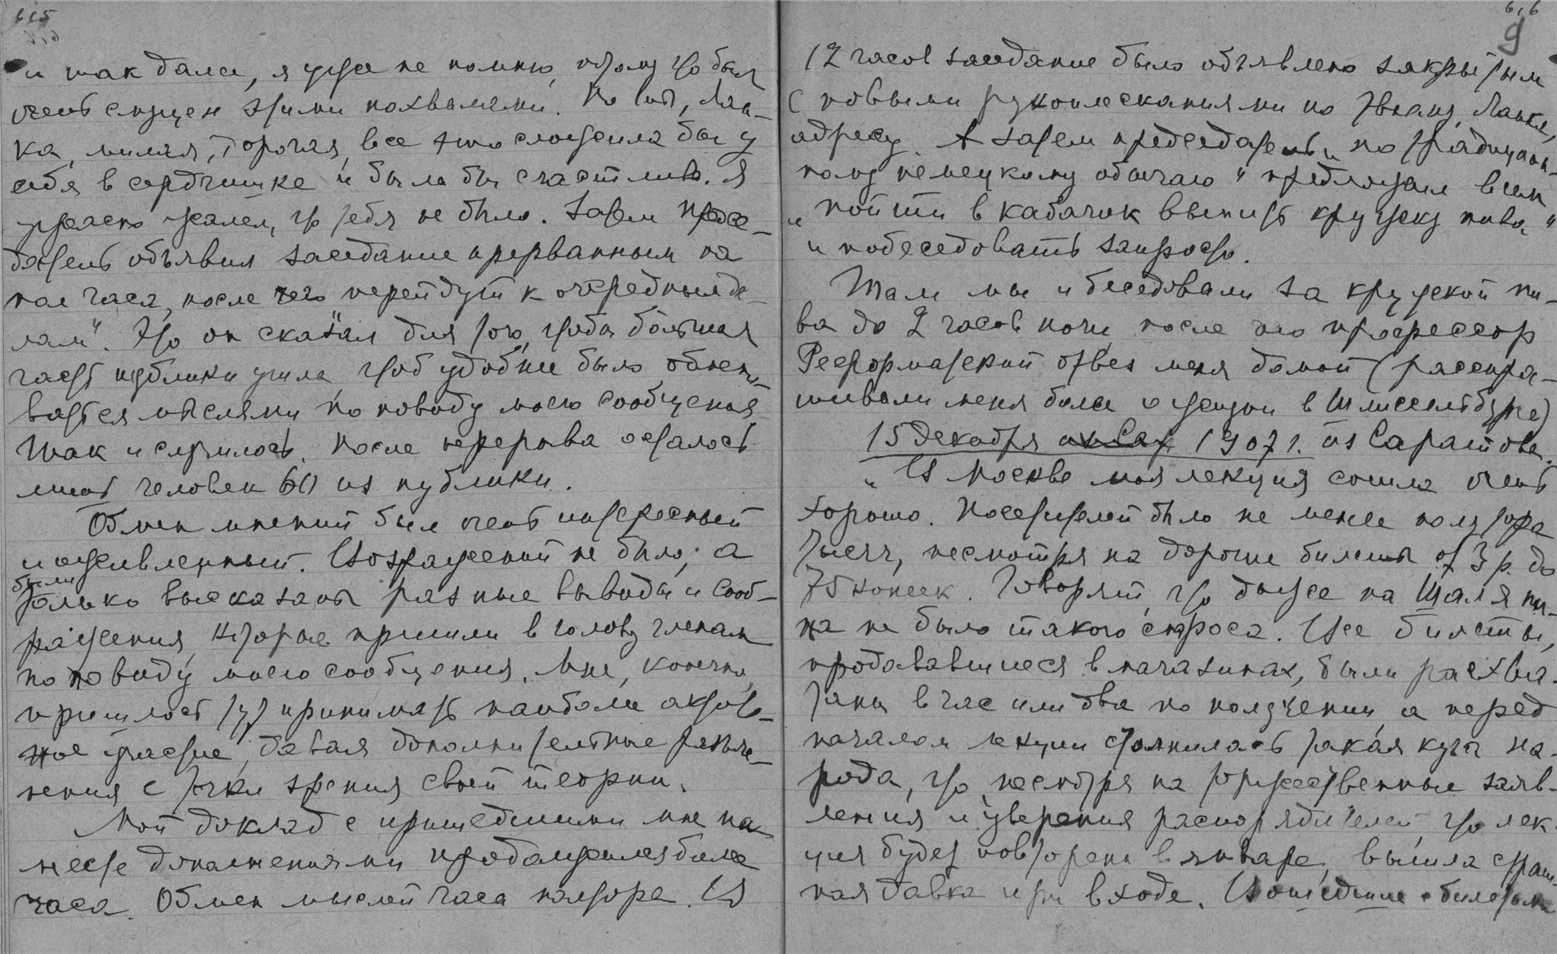 615
и так далее, я уже не помню, потому что был
очень смущен этими похвалами. Но ты, Лан-
ка, милая, дорогая, все это сложила бы у
себя в сердчишке и была бы счастлива. Я
ужасно жалел, что тебя не было. Затем предсе-
датель объявил заседание прерванным на
пол часа, после чего перейдут к очередным де-
лам". Это он сказал для того, чтобы большая
часть публики ушла, чтоб удобнее было обмени-
ваться мыслями по поводу моего сообщения.
Так и случилось. После перерыва осталось
лишь человек 60 из публики.
Обмен мнений был очень интересный
и оживленный. Возражений не было; а
были
только высказаны разные выводы и сооб-
ражения, которые пришли в голову членам
по поводу моего сообщения. Мне, конечно,
пришлось тут принимать наиболее актив-
ное участие, давая дополнительные разъяс-
нения с точки зрения своей теории.
Мой доклад с пришедшими мне на
месте дополнениями продолжался более
часа. Обмен мыслей часа полтора. В
616
9
12 часов заседание было объявлено закрытым
с новыми рукоплесканиями по твоему, Ланка,
адресу. А затем председатель „по традицион-
ному немецкому обычаю" предложил всем
„пойти в кабачок выпить кружку пива"
и побеседовать запросто.
Там мы и беседовали за кружкой пи-
ва до 2 часов ночи, после чего профессор
Реформатский отвез меня домой (расспра-
шивали меня более о жизни в Шлиссельбурге)
15 декабря 1907 г. из Саратова.
„В Москве моя лекция сошла очень
хорошо. Посетителей было не менее полутора
тысяч, несмотря на дорогие билеты от 3 р. до
75 копеек. Говорят, что даже на Шаляпи-
на не было такого спроса. Все билеты,
продававшиеся в магазинах, были расхва-
таны в час или два по получении, а перед
началом лекции столпилась такая куча на-
рода, что несмотря на торжественные заяв-
ления и уверения распорядителей, что лек-
ция будет повторена в январе, вышла страш-
ная давка при входе. Вошедшие с билетами